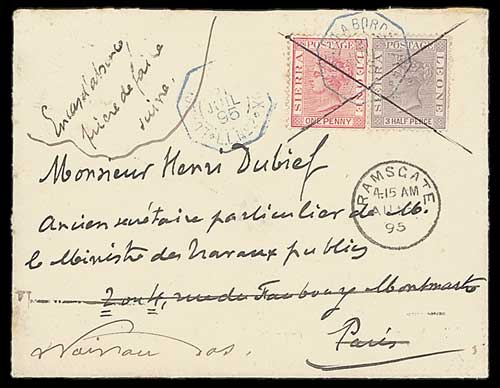 En cas d'absence,
prière de faire
suivre.
JUIL
95
A BORD
SIERRA
POSTAGE
LEONE
ONE PENNY
SIERRA
POSTAGE
LEONE
3 HALF PENCE
Monsieur Henri Dubief
Ancien secrétaire particulier de M.
le Ministre des Travaux publics
2 ou 4, rue du Faubourg Montmartre
Paris
RAMSGATE
4.15 AM
AU
95
Voir au dos.